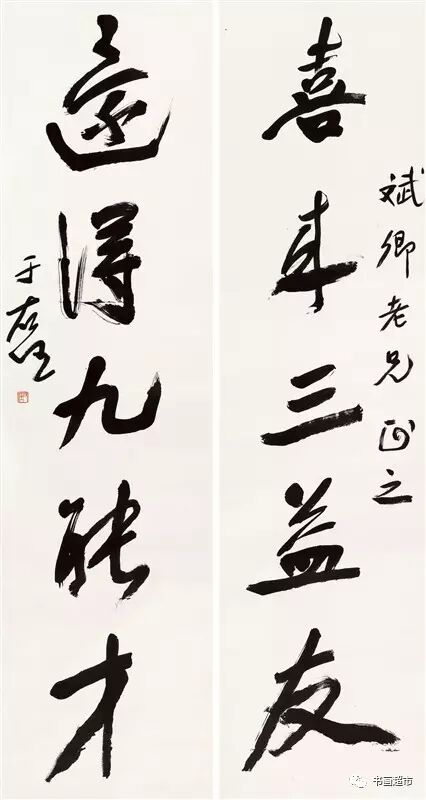 斌卿老兄正之
喜来三益友
還得九能才
于右任
书画超市